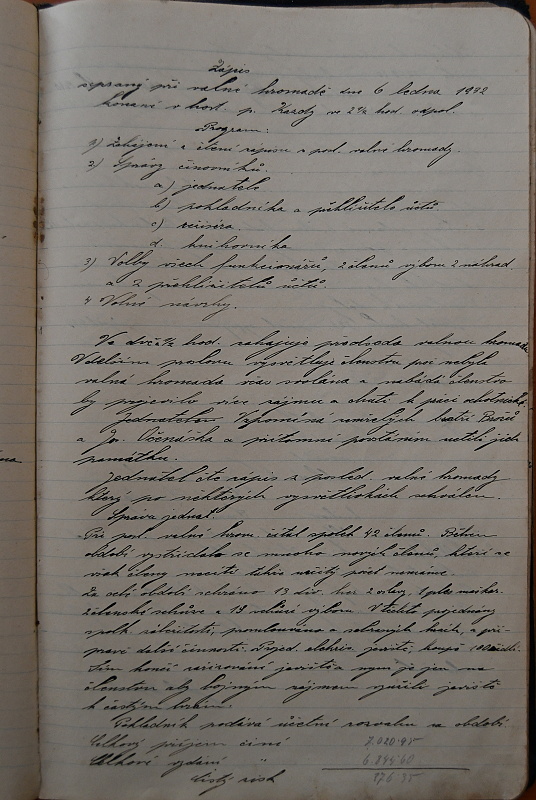 Zápis
sepsaný při valné hromadě dne 6 ledna 1932
konané v host. p. Kardy ve 2¼ hod. odpol.
Program:
1) Zahájení a čtení zápisu z posl. valné hromady.
2) Zprávy činovníků.
a) jednatele
b) pokladníka a přehlížitele účtů
c) režiséra.
d. knihovníka
3) Volby všech funkcionářů, 2 členů výboru 2 náhrad.
a 2 přehlížitelů účtů.
4 Volné návrhy.
Ve hod. zahajuje předseda valnou hromadu
proslovu vysvětluje členstvu proč nebyla
valná hromada svolána a nabádá členstvo
by projevilo více zájmu a chuti k práci
Jednatelem Vzpomíná zemřelých bratří
a Jos. Očenáška a přítomní povstáním uctili jich
památku.
Jednatel čte zápis z posled. valné hromady
který po některých vysvětlivkách schválen.
Zpráva jednat.
Při posl. valné hrom. čítal spolek 42 členů. Během
období vystřídalo se mnoho nových členů, kteří se
však členy necítí takže určitý počet nemáme.
Za celé období sehráno 13 div. her 2 oslavy, 1 ples
členské schůze a 19 schůzí výboru. V těchto projednány
spolk. záležitosti, promlouváno o sehraných kusech, a pří-
pravě další činnosti. Projed. elektris. jeviště, koupě
Tím končí jeviště a nyní je jen na
členstvu aby hojným zájmem využili jeviště
k častým hrám.
Pokladník podává účetní rozvahu za období.
Celkový příjem činí 7.020.95
Celkové vydání " 6.844.60
Čistý zisk 176 35